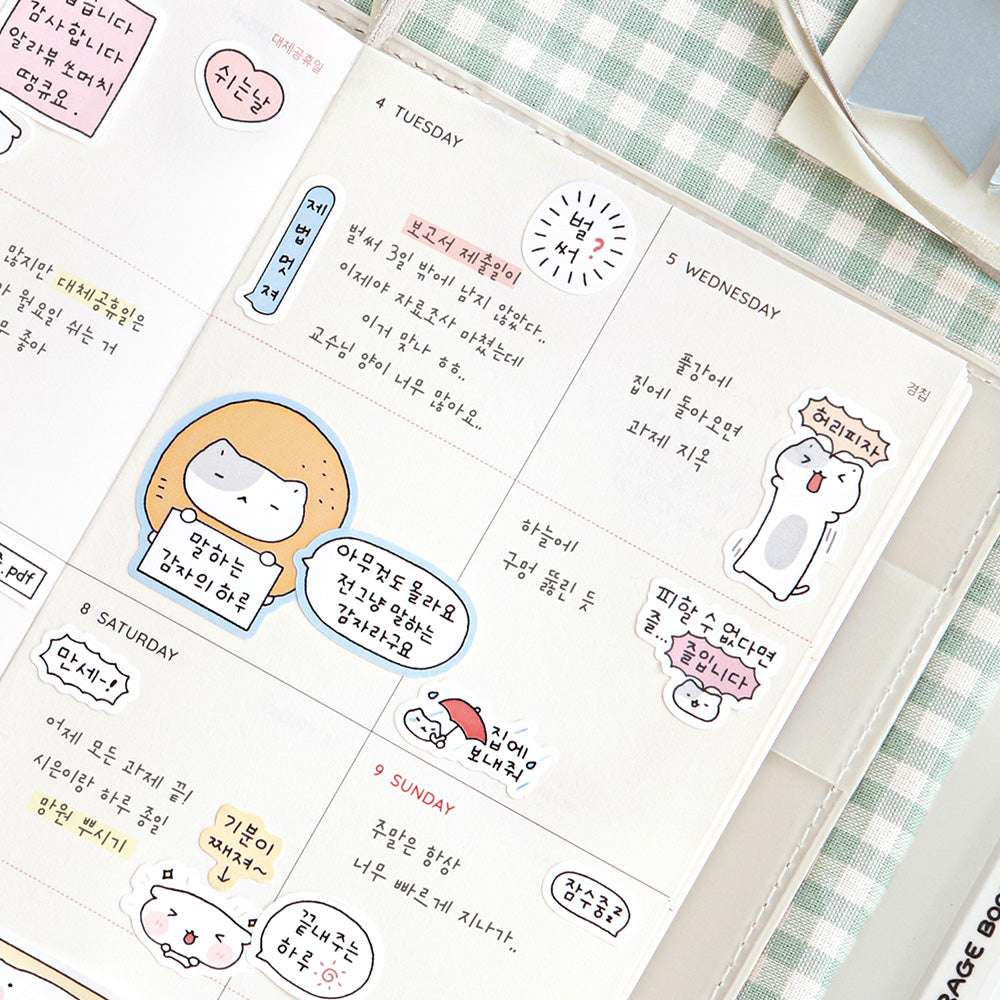 감사합니다
알라뷰 쏘머치
땡큐요.
대체공휴일
쉬는날
많지만 대체공휴일은
월요일 쉬는 거
좋아
.pdf
4 TUESDAY
제법멋져
벌써?
보고서 제출일이
벌써 3일 밖에 남지 않았다..
이제야 자료조사 마쳤는데
이거 맞나 ㅎㅎ..
교수님 양이 너무 많아요..
말하는
감자의하루
아무것도 몰라요
전그냥 말하는
감자라구요
5 WEDNESDAY
경칩
풀강에
집에 돌아오면
과제 지옥
허리피자
하늘에
구멍 뚫린 듯
피할 수 없다면
즐...
즐입니다
집에
보내줘
8 SATURDAY
만세-!
어제 모든 과제 끝!
시은이랑 하루 종일
망원 뿌시기
기분이
째져~
끝내주는
하루
9 SUNDAY
주말은 항상
너무 빠르게 지나가..
잠수중